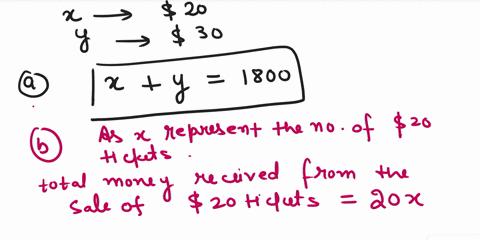 x → $20
y → $30
(a) x + y = 1800
(b) As x represent the no. of $20
tickets.
total money received from the
sale of $20 tickets = 20x